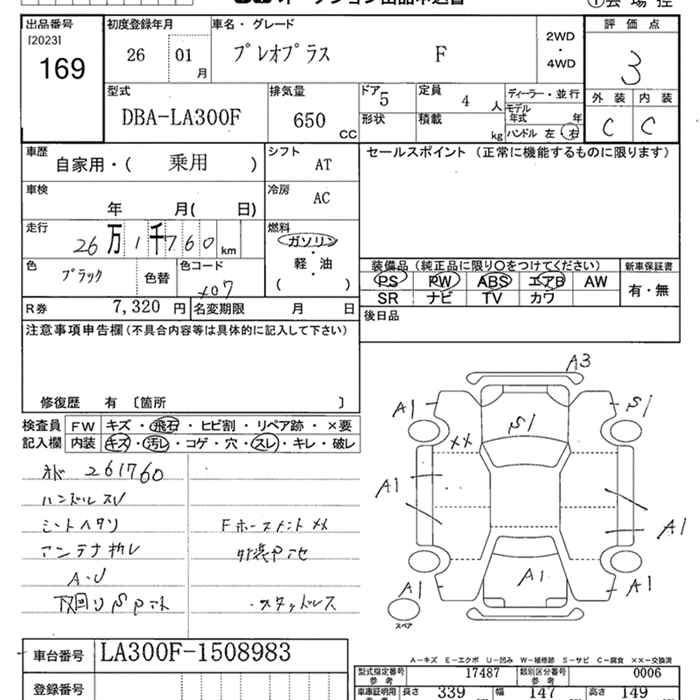 オークション出品申込書
出品番号 初度登録年月 車名・グレード 評価点
[2023]
169
26 01月 プレオプラス F 2WD・4WD 3
型式 排気量 ドア 定員 ディーラー・並行 外装 内装
DBA-LA300F 650 CC 5 4人 モデル年式 年 C C
形状 積載 kg ハンドル 左・右
車歴 自家用・(乗用) シフト AT セールスポイント(正常に機能するものに限ります)
車検 年 月(日) 冷房 AC
走行 26万1千760km 燃料 ガソリン・軽・油 ( )
色 ブラック 色替 色コード X07
装備品(純正品に限り○をつけてください) 新車保証書
PS PW ABS エアB AW 有・無
SR ナビ TV カワ
R券 7,320円 名変期限 月 日
後日品
注意事項申告欄(不具合内容等は具体的に記入して下さい)
修復歴 有 〔箇所 〕
検査員 FW キズ・飛石・ヒビ割・リペア跡・×要
記入欄 内装 キズ・汚レ・コゲ・穴・スレ・キレ・破レ
261760
ハンドルスレ
シートヘタリ
アンテナ折レ
A・U
下回りSPet
スタッドレス
A3
A1 S1 S1
XX
A1
A1
A1 A1 A1
スペア
A-キズ E-エクボ U-凹み W-補修跡 S-サビ C-腐食 XX-交換済
車台番号 LA300F-1508983
登録番号
型式指定番号 参考 17487 類別区分番号 参考 0006
車庫証明用 参考 長さ 339 幅 147 高さ 149